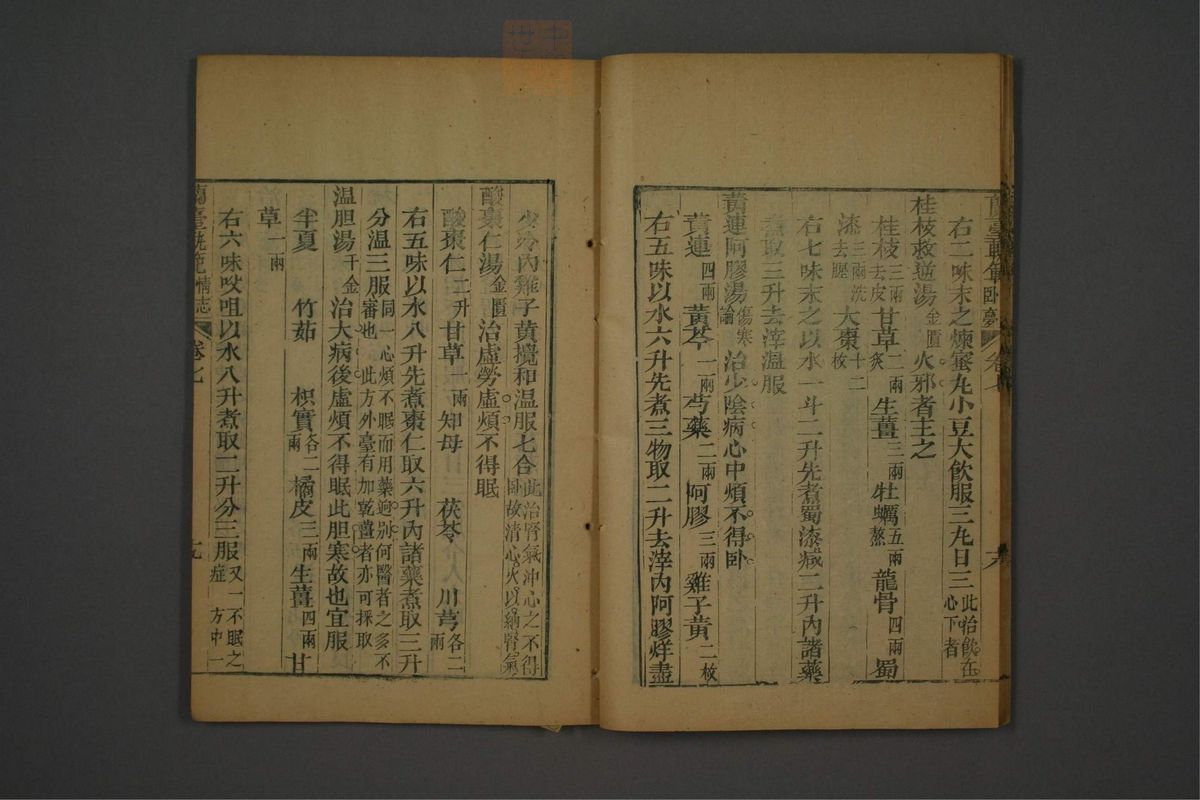 右二味末之煉蜜丸小豆大飲服三丸日三此治飲在心下者
桂枝救逆湯金匱火邪者主之
桂枝三兩去皮甘草二兩炙生薑三兩牡蠣五兩熬龍骨四兩蜀
漆三兩洗去腥大棗十二枚
右七味末之以水一斗二升先煮蜀漆減二升內諸藥
煮取三升去滓温服
黃連阿膠湯傷寒論治少陰病心中煩不得卧
黃連四兩黃芩一兩芍藥二兩阿膠三兩雞子黃二枚
右五味以水六升先煮三物取二升去滓內阿膠烊盡
少冷內雞子黃攪和温服七合此治腎氣沖心之不得卧故清心火以納腎氣
酸棗仁湯金匱治虛勞虛煩不得眠
酸棗仁二升甘草一兩知母 茯苓 川芎各二兩
右五味以水八升先煮棗仁取六升內諸藥煮取三升
分温三服同一心煩不眠而用藥迥别何醫者之多不審也 此方外臺有加乾薑者亦可採取
温胆湯千金治大病後虛煩不得眠此胆寒故也宜服
半夏 竹茹 枳實各二兩橘皮三兩生薑四兩甘
草一兩
右六味㕮咀以水八升煮取二升分三服又一不眠之症 方中一
蘭臺軌範情志 卷七